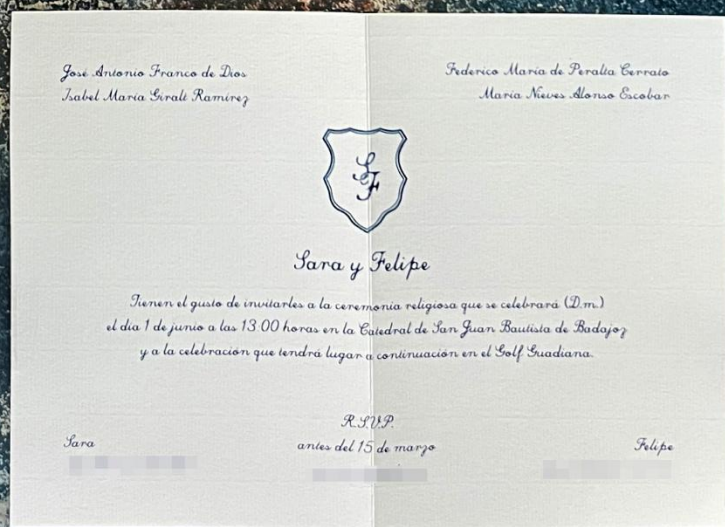 José Antonio Franco de Dios
Isabel María Giralt Ramírez
Federico María de Peralta Cerrato
María Nieves Alonso Escobar
S
F
Sara y Felipe
Tienen el gusto de invitarles a la ceremonia religiosa que se celebrará (D.m.)
el día 1 de junio a las 13:00 horas en la Catedral de San Juan Bautista de Badajoz
y a la celebración que tendrá lugar a continuación en el Golf Guadiana.
R.S.V.P.
antes del 15 de marzo
Sara
Felipe